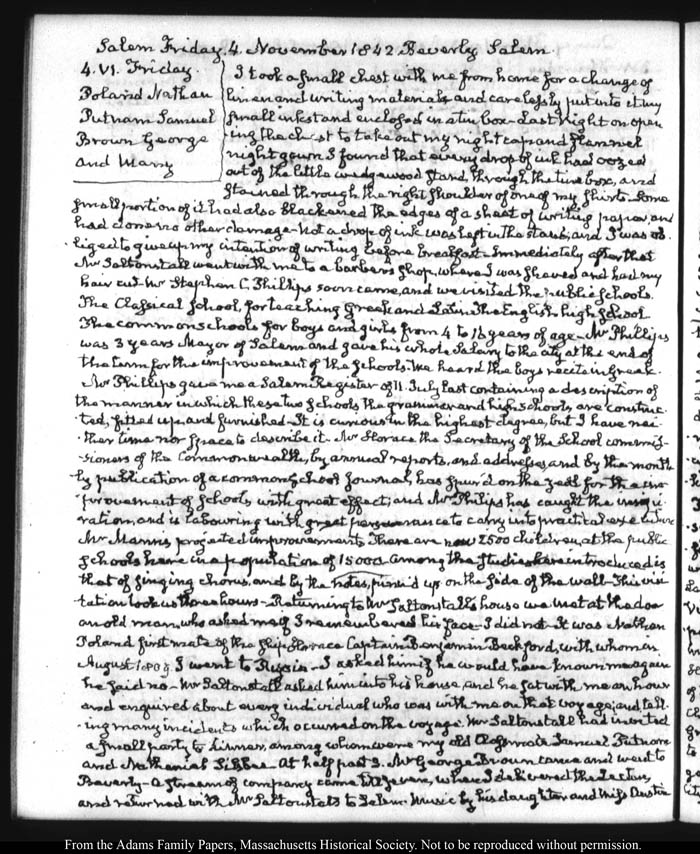 Salem Friday 4. November 1842 Beverly Salem.
4. VI. Friday
Poland Nathan
Putnam Samuel
Brown George
and Mary
I took a small chest with me from home for a change of
linen and writing materials and carelessly put into it my
small inkstand enclosed in a tin box - Last night on open
ing the chest to take out my night cap and flannel
night gown I found that every drop of ink had oozed
out of the little wedgewood stand through the tin box, and
stained through the right shoulder of one of my shirts. Some
small portion of it had also blackened the edges of a sheet of writing paper, and
had done no other damage - Not a drop of ink was left in the stand, and I was ob
liged to give up my intention of writing before breakfast - Immediately after that
Mr Saltonstall went with me to a barber's shop, where I was shaved and had my
hair cut - Mr Stephen C. Phillips soon came, and we visited the public schools.
The Classical School, for teaching Greek and Latin. The English high school
The common schools for boys and girls from 4 to 16 years of age - Mr Phillips
was 3 years Mayor of Salem and gave his whole Salary to the city at the end of
the term for the improvement of the schools. We heard the boys recite in Greek.
Mr Phillips gave me a Salem Register of 11. July last containing a description of
the manner in which these two schools the grammar and high schools, are construc-
ted, fitted up, and furnished - It is curious in the highest degree, but I have nei-
ther time nor space to describe it - Mr Horace the Secretary of the School commis-
sioners of the Commonwealth, by annual reports, and addresses, and by the month
ly publication of a common school journal, has spur'd on the zeal for the im
provement of schools, with great effect; and Mr Philips has caught the inspi
ration, and is labouring with great perseverance to carry into practical execution
Mr Mann's projected improvements. There are now 2500 children, at the public
schools here in a population of 15000. among the studies here introduced is
that of singing chorus, and by the notes, pinn'd up on the side of the wall - This visi
tation took us three hours - Returning to Mr Saltonstall's house we met at the door
an old man, who asked me if I remembered his face - I did not - It was Nathan
Poland first mate of the ship Horace Captain Benjamin Beckford, with whom in
August 1809 I went to Russia - I asked him if he would have known me again
he said no - Mr Saltonstall asked him into his house, and he sat with me an hour
and enquired about every individual who was with me on that voyage, and tell-
ing many incidents which occurred on the voyage. Mr Saltonstall had invited
a small party to dinner, among whom were my old Classmate Samuel Putnam
and Nathaniel Silsbee - At half past 3. Mr George Brown came and went to
Beverly - A stream of company came till seven, when I delivered the Lecture,
and returned with Mr Saltonstall to Salem. Music by his daughter and Miss
From the Adams Family Papers, Massachusetts Historical Society. Not to be reproduced without permission.